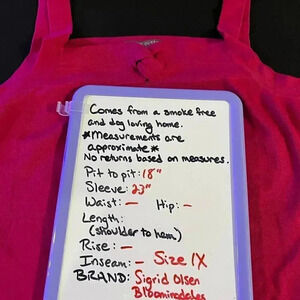 Comes from a smoke free
and dog loving home.
*Measurements are
approximate*
No returns based on measures.
Pit to pit: 18"
Sleeve: 23"
Waist: — Hip: —
Length:
(shoulder to hem)
Rise: —
Inseam: — Size 1X
BRAND: Sigrid Olsen
Bloomingdales